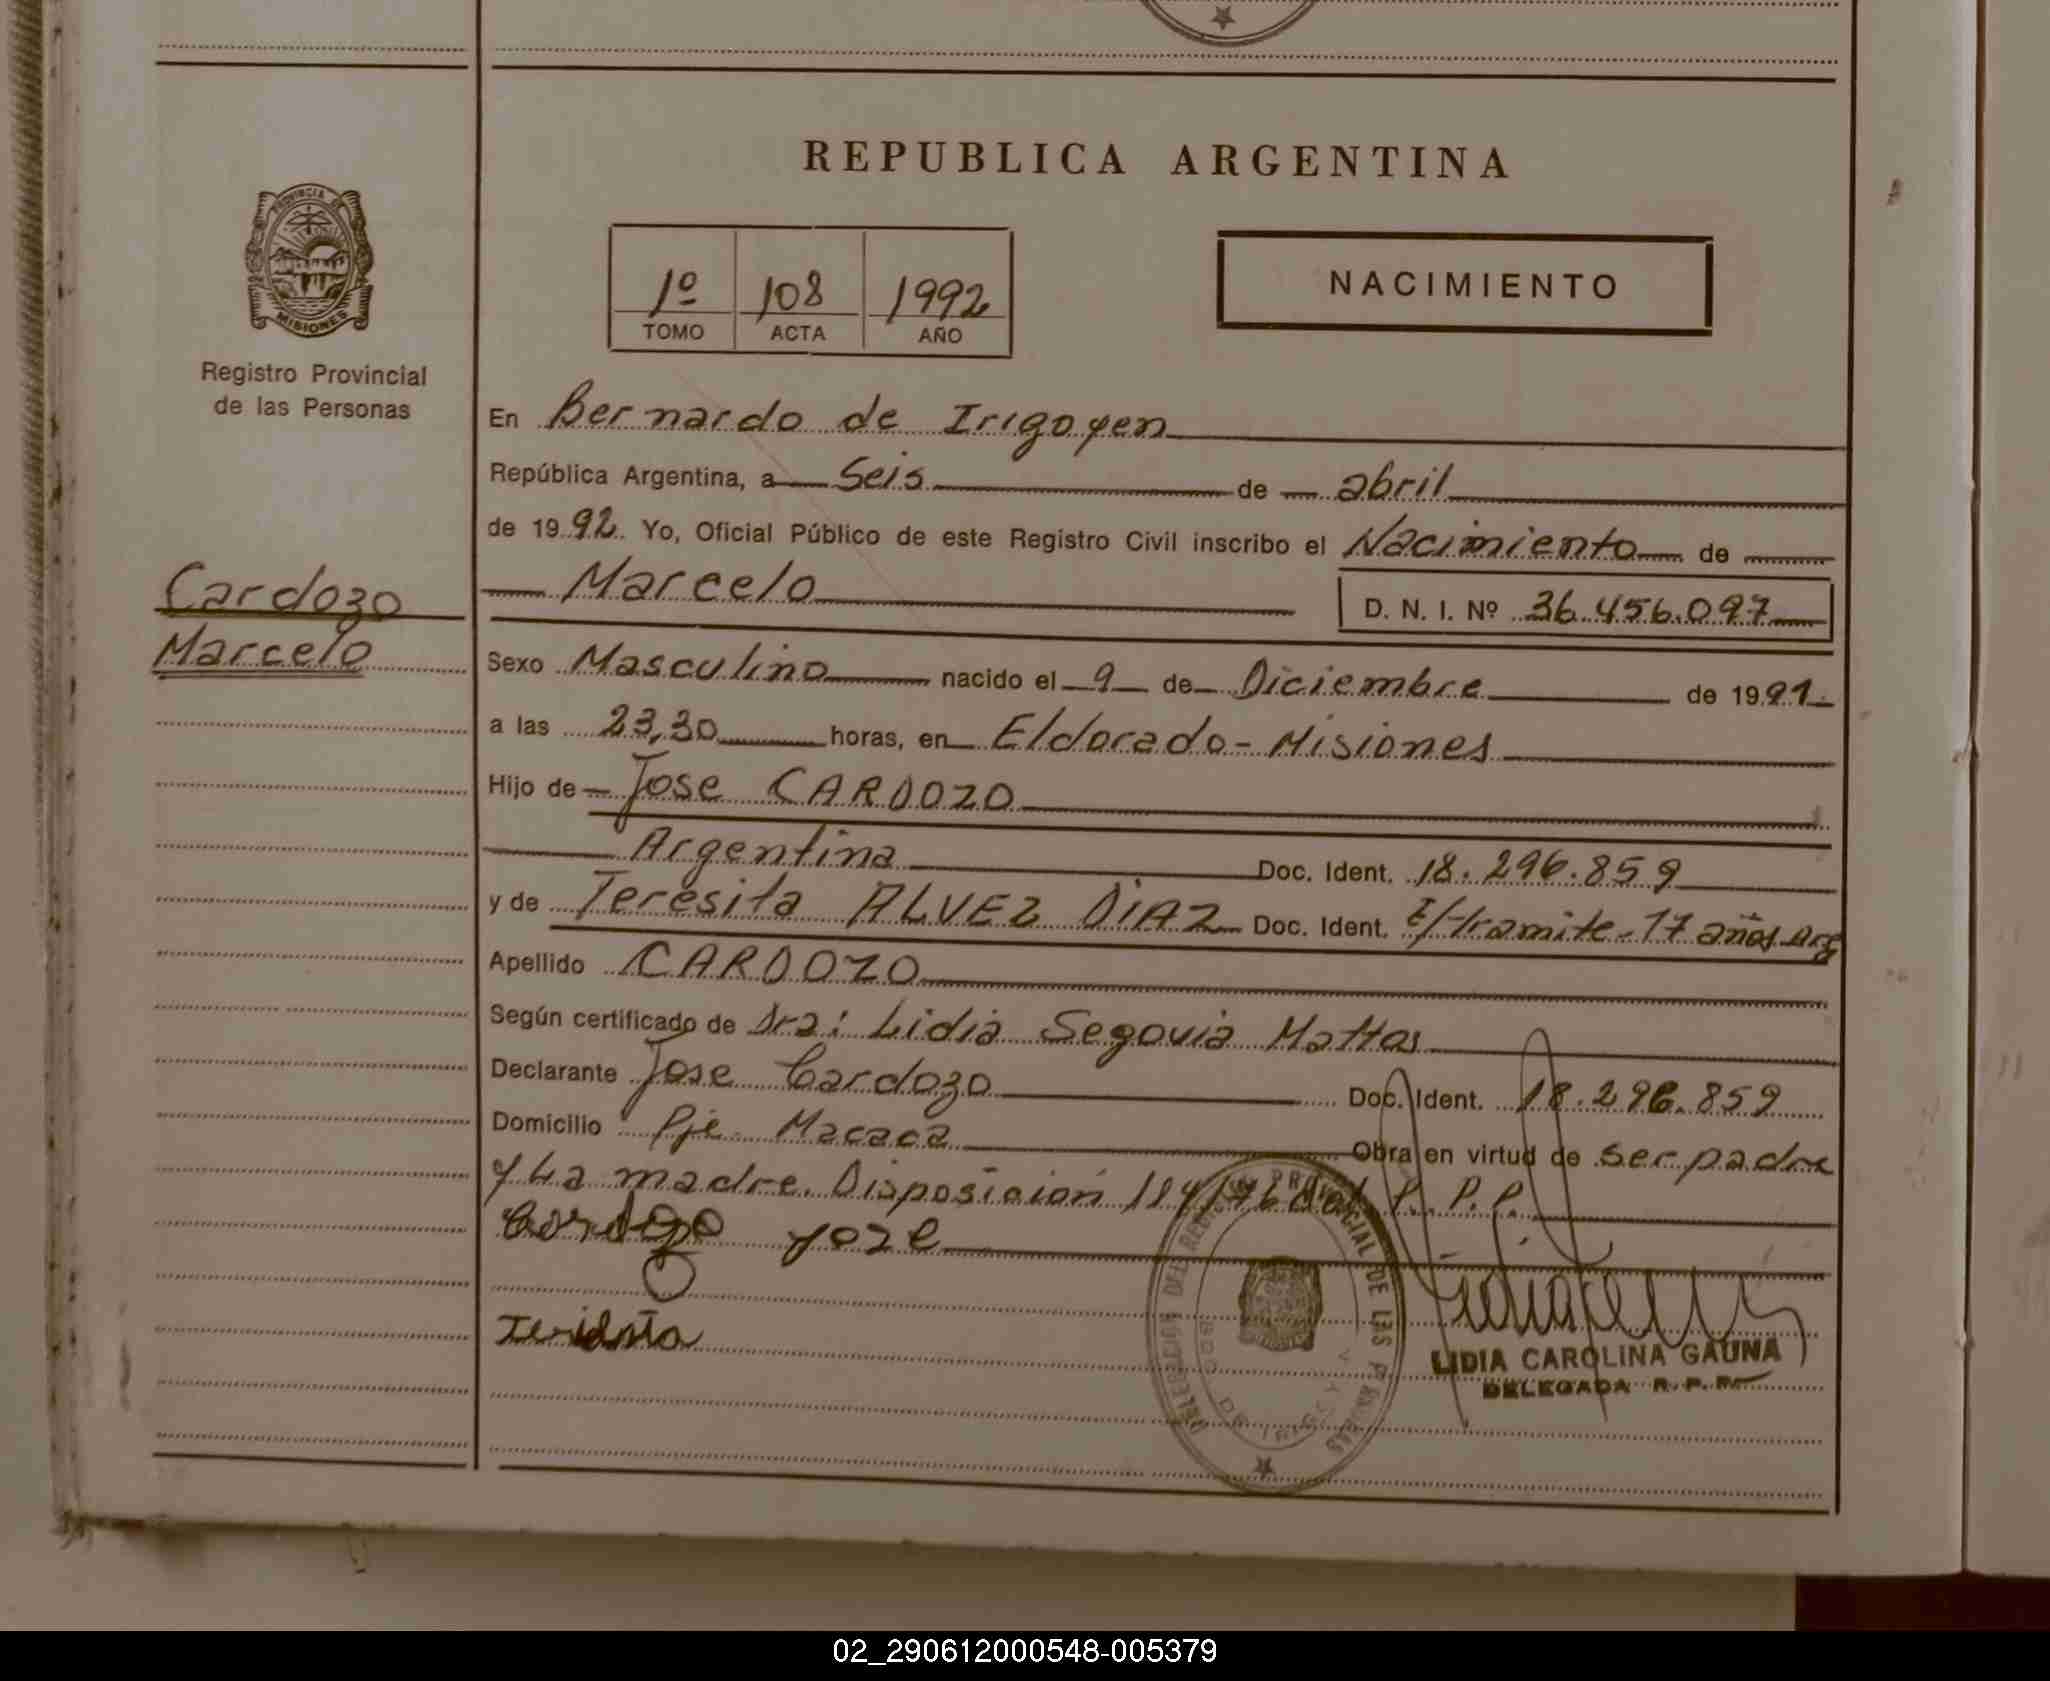 REPUBLICA ARGENTINA
PROVINCIA DE
MISIONES
Registro Provincial
de las Personas
Cardozo
Marcelo
1º 108 1992
TOMO ACTA AÑO
NACIMIENTO
En Bernardo de Irigoyen
República Argentina, a Seis de abril
de 1992. Yo, Oficial Público de este Registro Civil inscribo el Nacimiento de
Marcelo
D. N. I. Nº 36.456.097
Sexo Masculino nacido el 9 de Diciembre de 1991
a las 23,30 horas, en Eldorado - Misiones
Hijo de Jose CARDOZO
Argentina Doc. Ident. 18.296.859
y de Teresita ALVEZ DIAZ Doc. Ident. E/tramite - 17 años Arg
Apellido CARDOZO
Según certificado de Dra: Lidia Segovia Mattos
Declarante Jose Cardozo Doc. Ident. 18.296.859
Domicilio Pje Macaca Obra en virtud de ser padre
y La madre. Disposición del R. P. P.
Cordozo Joze
DELEGACION DEL REGISTRO PROVINCIAL DE LAS PERSONAS
BDO DE IRIGOYEN
LIDIA CAROLINA GAUNA
DELEGADA R. P. P.
02_290612000548-005379